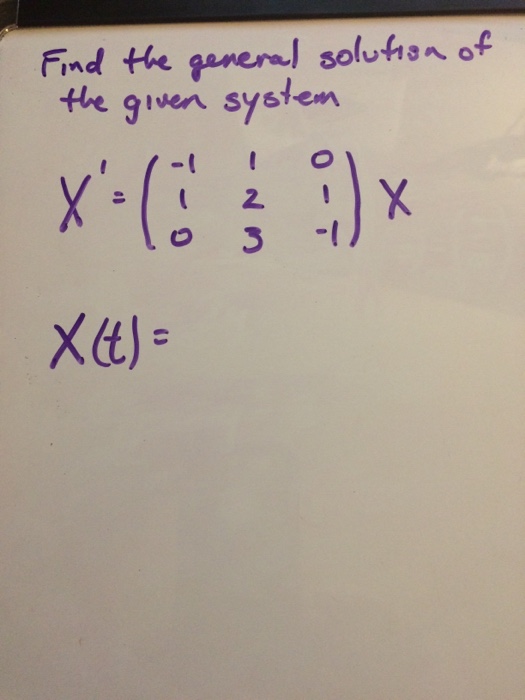 Find the general solution of
the given system
X' = ( -1 1 0
1 2 1
0 3 -1 ) X
X(t) =